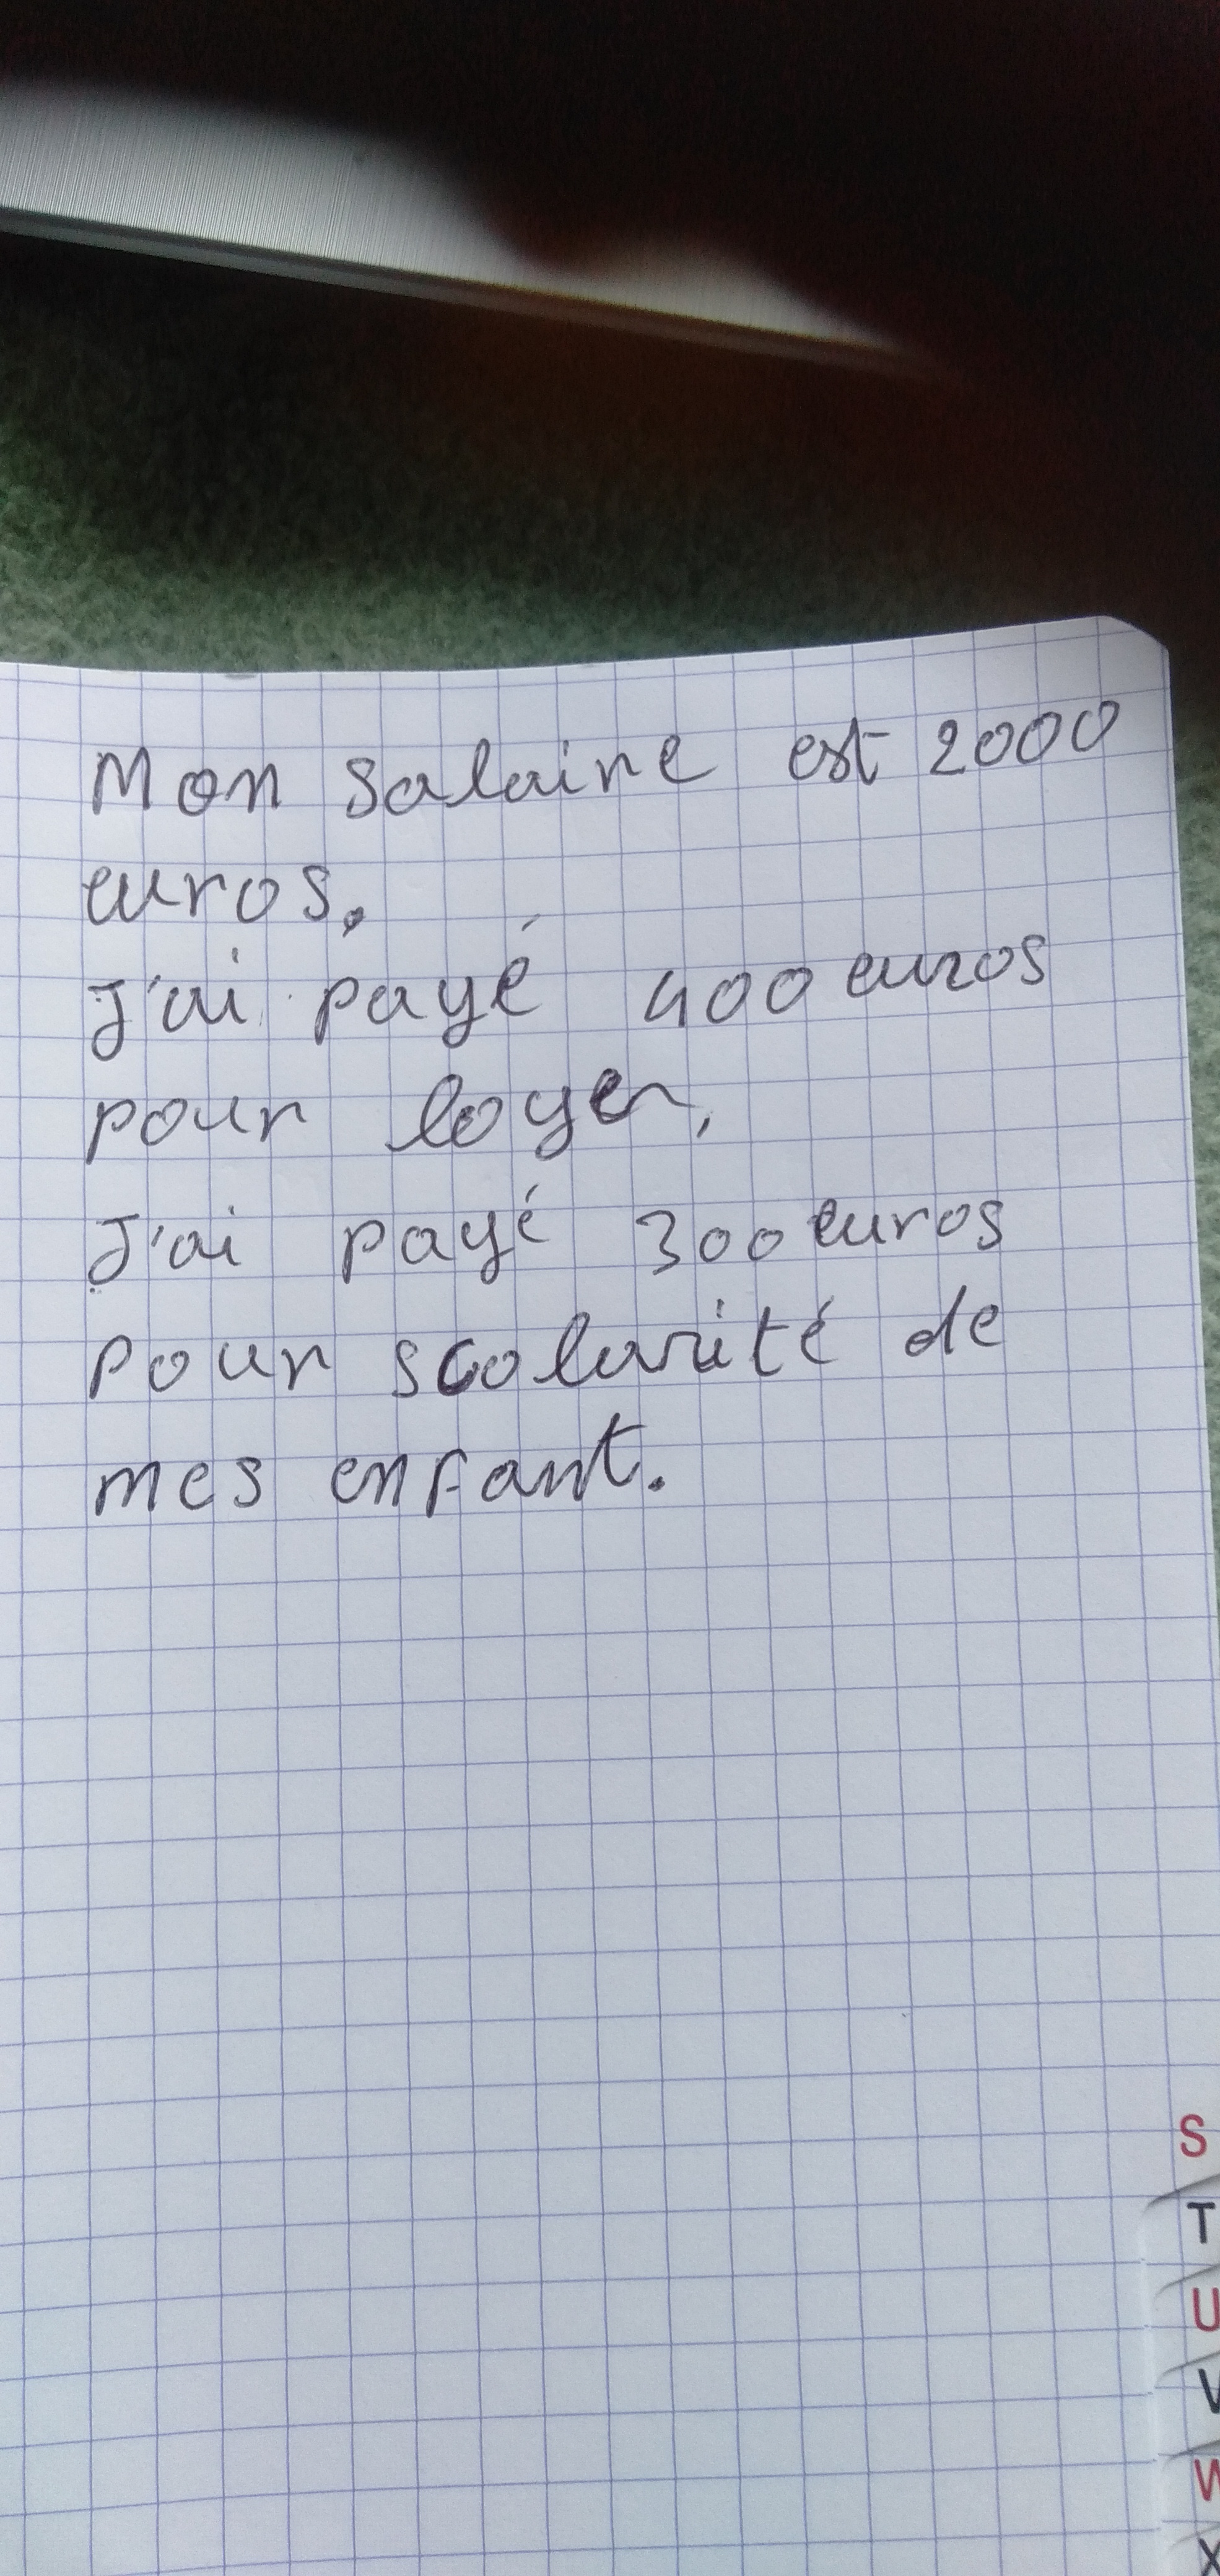 Mon salaire est 2000
euros.
J'ai payé 400 euros
pour loyer,
J'ai payé 300 euros
pour scolarité de
mes enfant.
S
T
U
V
W
X